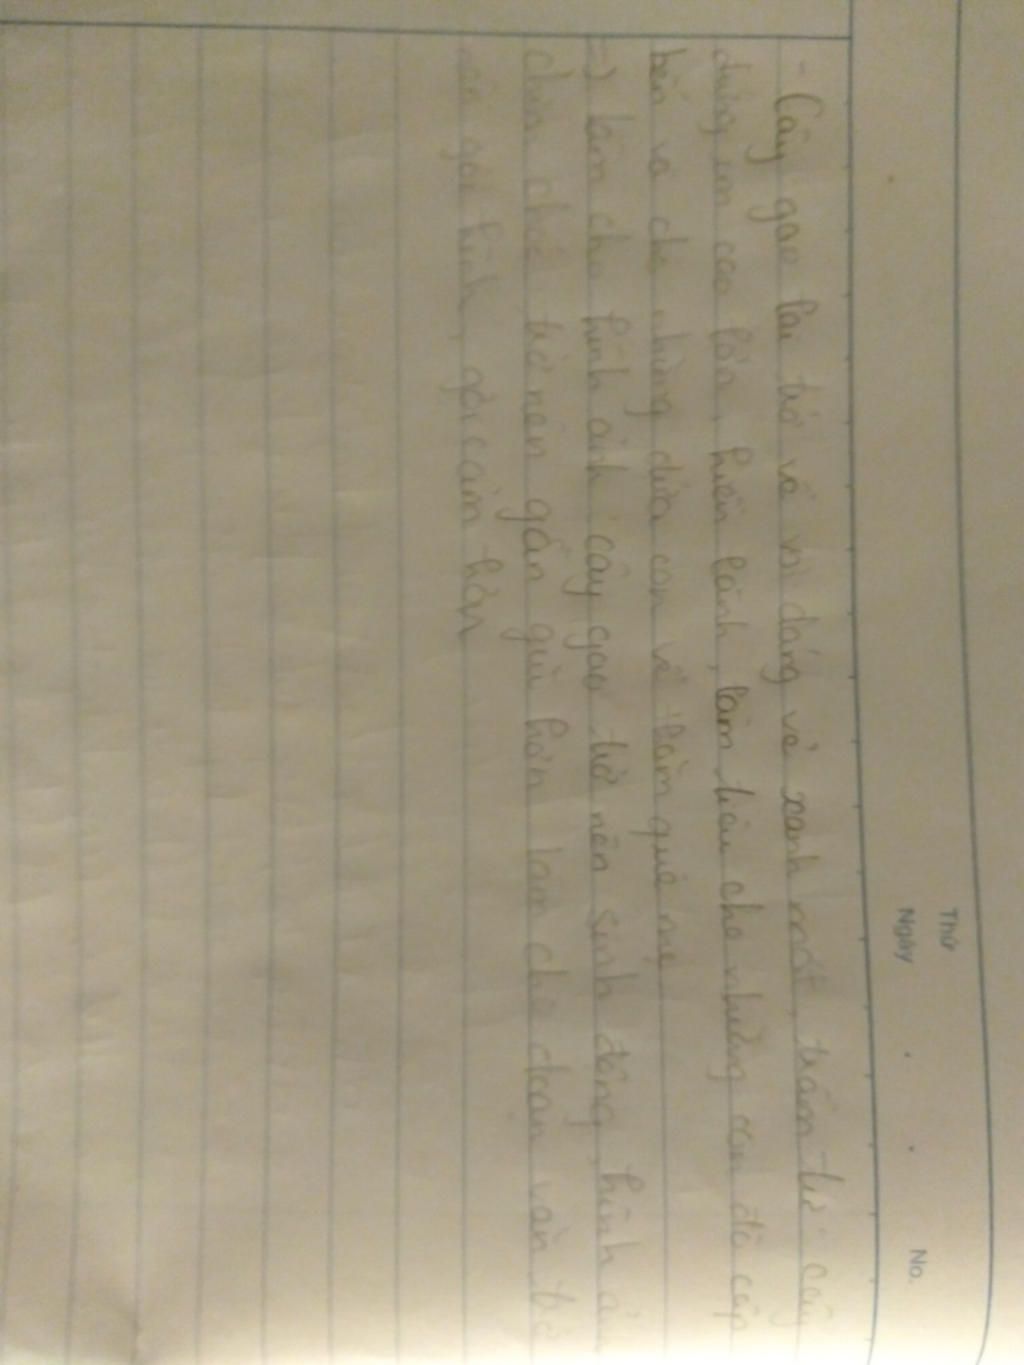 Thứ
Ngày . . No.
- Cây gạo lại trở về với dáng vẻ xanh mát, trầm tư. Cây
đứng im cao lớn, hiền lành, làm tiêu cho những con đò cập
bến và cho những đứa con về thăm quê mẹ
-) làm cho hình ảnh cây gạo trở nên sinh động, hình ản
chim chóc trở nên gần gũi hơn làm cho đoạn văn trở
nên gợi hình, gợi cảm hơn